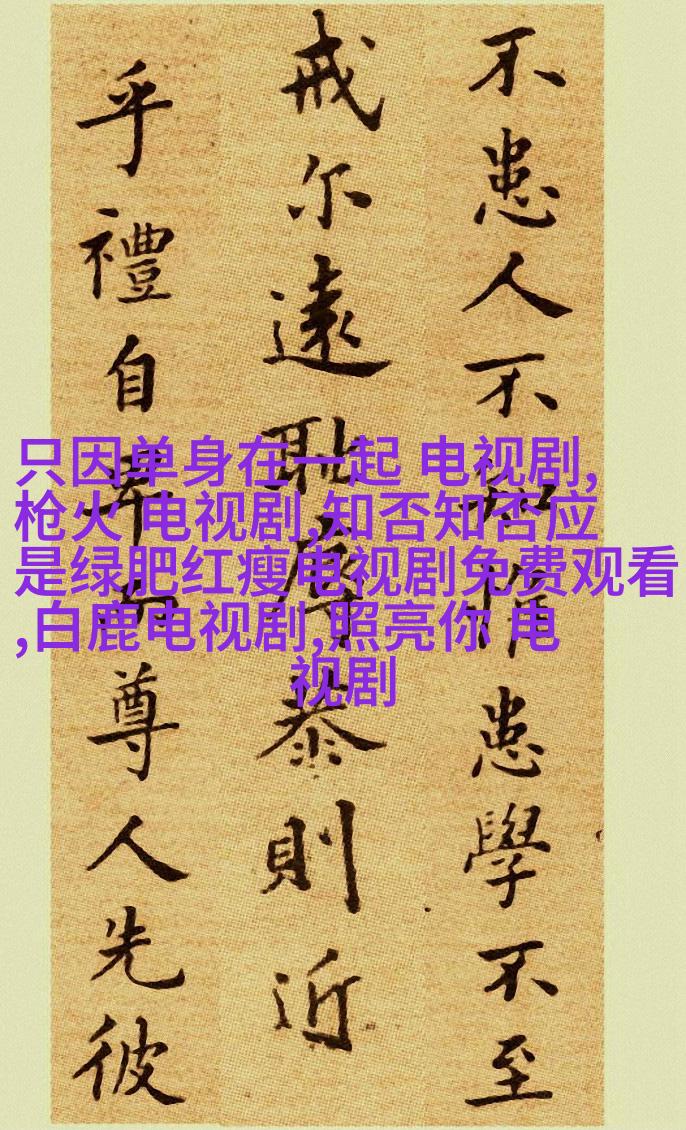 不患人不知惟患學不至
戒尔遠耻辱恭則近
乎禮自卑而尊人先彼
只因单身在一起 电视剧,
枪火 电视剧,知否知否应
是绿肥红瘦电视剧免费观看
,白鹿电视剧,照亮你 电
视剧